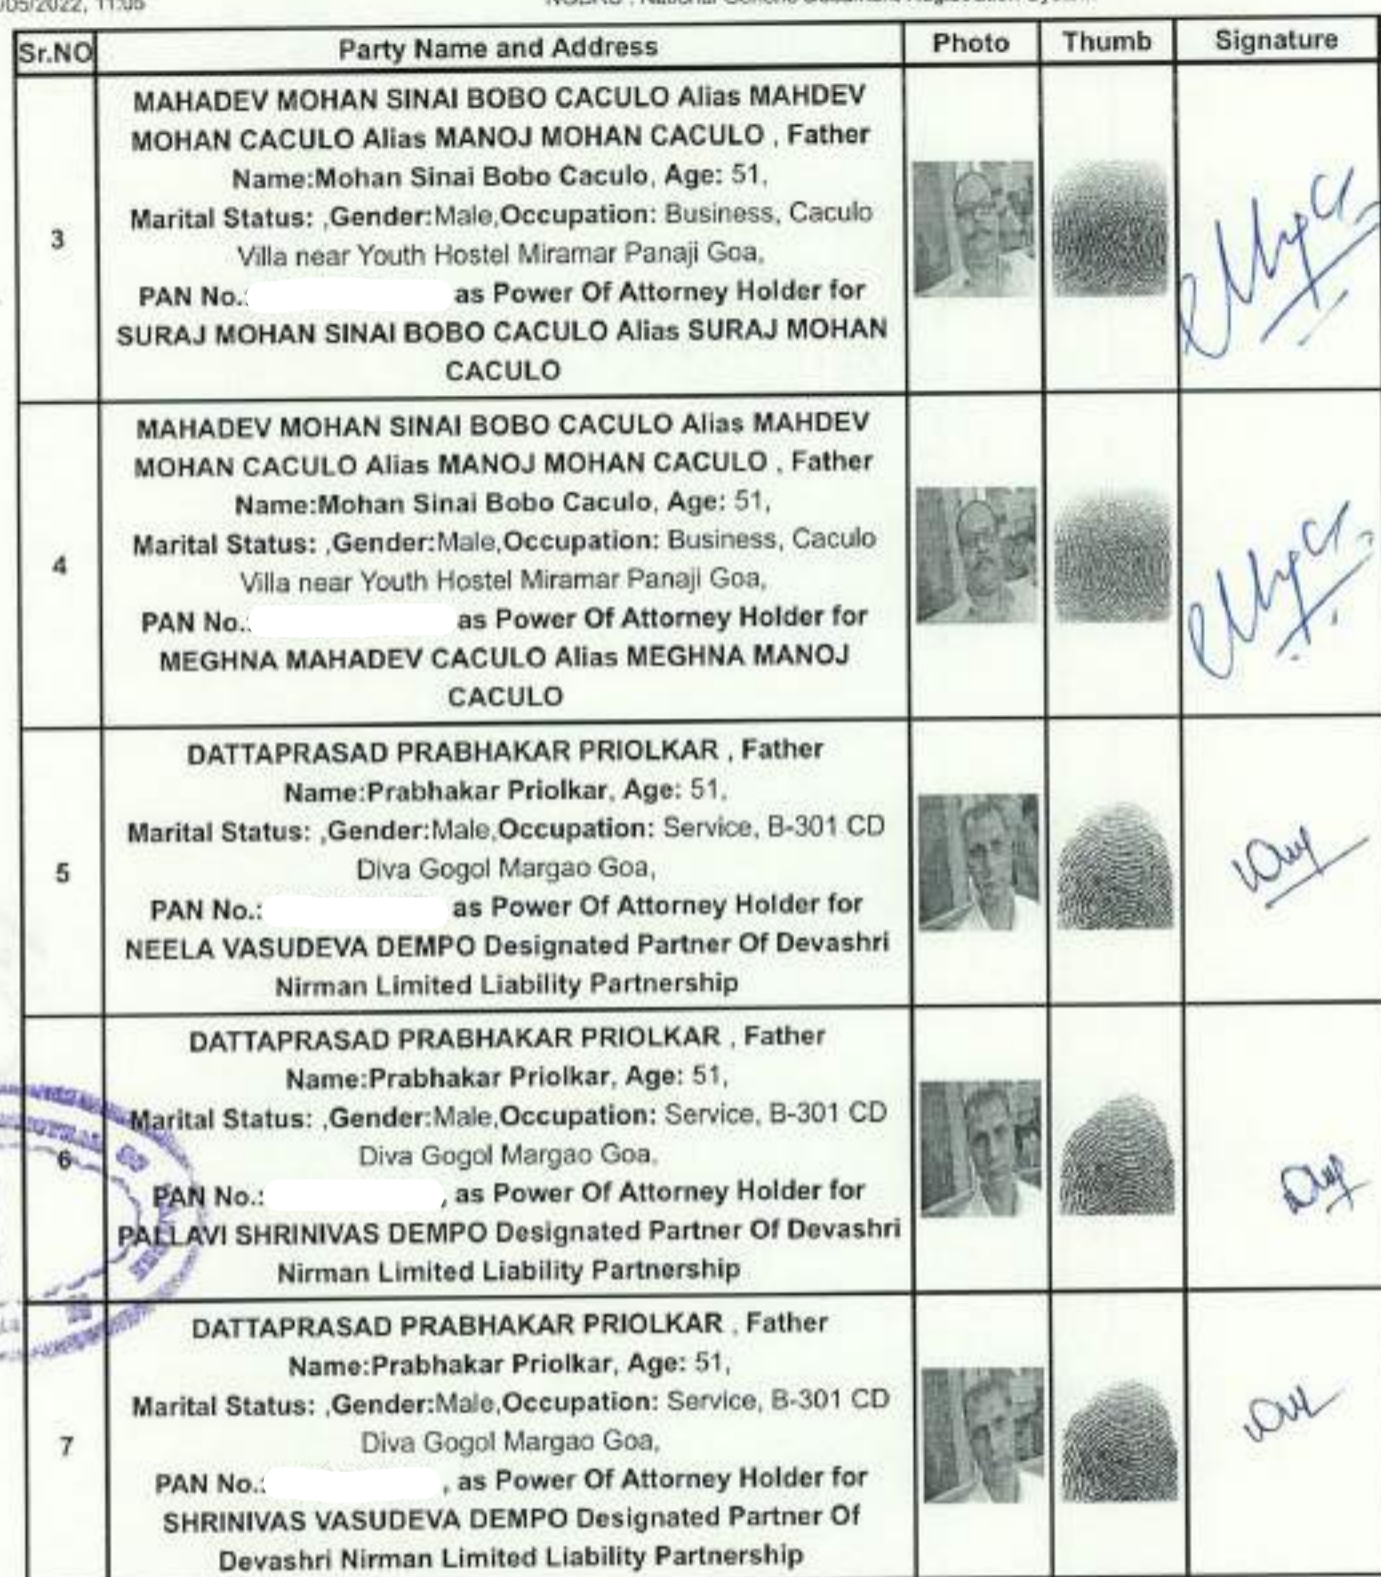 /05/2022, 11:05
NGDRS : National Generic Document Registration System
Sr.NO Party Name and Address Photo Thumb Signature
MAHADEV MOHAN SINAI BOBO CACULO Alias MAHDEV
MOHAN CACULO Alias MANOJ MOHAN CACULO , Father
Name:Mohan Sinai Bobo Caculo, Age: 51,
Marital Status: ,Gender:Male,Occupation: Business, Caculo
3
Villa near Youth Hostel Miramar Panaji Goa,
PAN No.: as Power Of Attorney Holder for
SURAJ MOHAN SINAI BOBO CACULO Alias SURAJ MOHAN
CACULO
MAHADEV MOHAN SINAI BOBO CACULO Alias MAHDEV
MOHAN CACULO Alias MANOJ MOHAN CACULO , Father
Name:Mohan Sinai Bobo Caculo, Age: 51,
Marital Status: ,Gender:Male,Occupation: Business, Caculo
4
Villa near Youth Hostel Miramar Panaji Goa,
PAN No.: as Power Of Attorney Holder for
MEGHNA MAHADEV CACULO Alias MEGHNA MANOJ
CACULO
DATTAPRASAD PRABHAKAR PRIOLKAR , Father
Name:Prabhakar Priolkar, Age: 51,
Marital Status: ,Gender:Male,Occupation: Service, B-301 CD
5
Diva Gogol Margao Goa,
PAN No.: as Power Of Attorney Holder for
NEELA VASUDEVA DEMPO Designated Partner Of Devashri
Nirman Limited Liability Partnership
DATTAPRASAD PRABHAKAR PRIOLKAR , Father
Name:Prabhakar Priolkar, Age: 51,
Marital Status: ,Gender:Male,Occupation: Service, B-301 CD
6
Diva Gogol Margao Goa,
PAN No.: , as Power Of Attorney Holder for
PALLAVI SHRINIVAS DEMPO Designated Partner Of Devashri
Nirman Limited Liability Partnership
DATTAPRASAD PRABHAKAR PRIOLKAR , Father
Name:Prabhakar Priolkar, Age: 51,
Marital Status: ,Gender:Male,Occupation: Service, B-301 CD
7
Diva Gogol Margao Goa,
PAN No.: , as Power Of Attorney Holder for
SHRINIVAS VASUDEVA DEMPO Designated Partner Of
Devashri Nirman Limited Liability Partnership